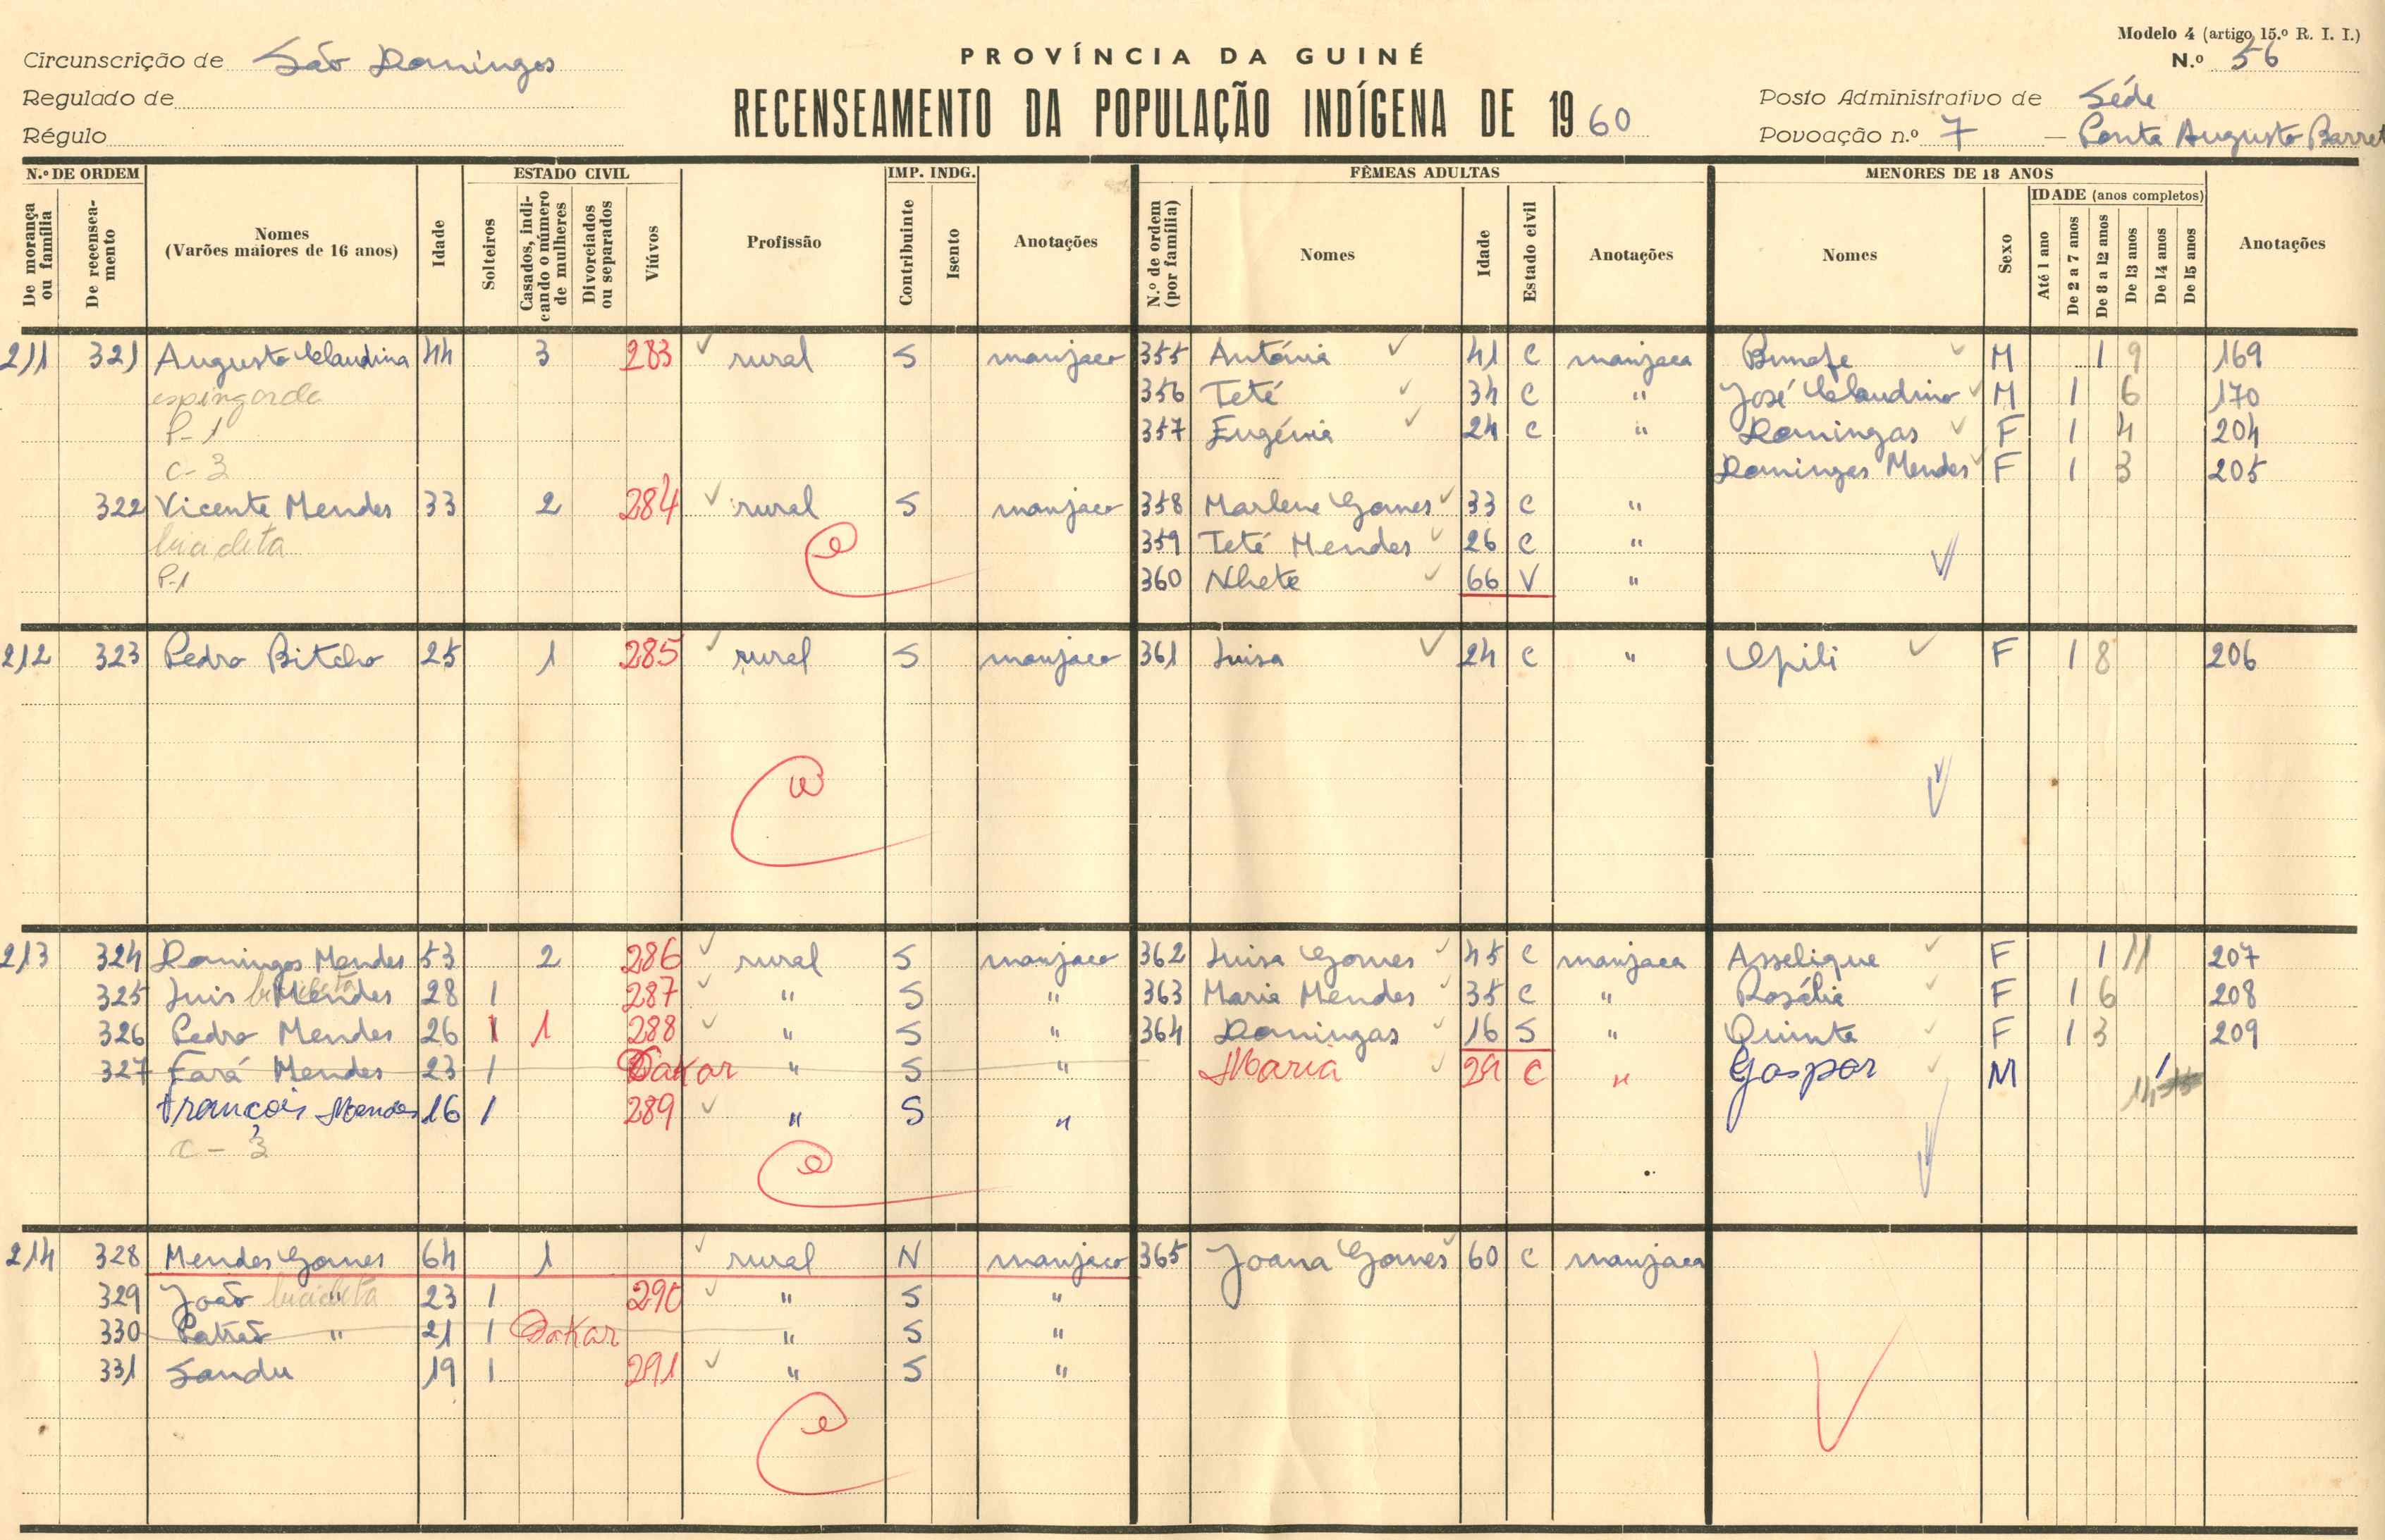 Modelo 4 (artigo 15.º R. I. I.)
Circunscrição de São Domingos
PROVÍNCIA DA GUINÉ
N.º 56
Regulado de
RECENSEAMENTO DA POPULAÇÃO INDÍGENA DE 1960
Posto Administrativo de Séde
Régulo
Povoação n.º 7 — Ponta Augusto Barret
N.º DE ORDEM ESTADO CIVIL IMP. INDG. FÊMEAS ADULTAS MENORES DE 18 ANOS
De morança ou família
De recensea-mento
Nomes
(Varões maiores de 16 anos)
Idade
Solteiros
Casados, indi-cando o número de mulheres
Divorciados ou separados
Viúvos
Profissão
Contribuinte
Isento
Anotações
N.º de ordem (por família)
Nomes
Idade
Estado civil
Anotações
Nomes
Sexo
IDADE (anos completos)
Até 1 ano
De 2 a 7 anos
De 8 a 12 anos
De 13 anos
De 14 anos
De 15 anos
Anotações
211 321 Augusto Claudina 44 3 283 rural S manjaco 355 Antónia 41 C manjaca M 1 9 169
espingarda 356 Teté 34 C " José Claudino M 1 6 170
P-1 357 Eugénia 24 C " Domingas F 1 4 204
C-3 Domingas Mendes F 1 3 205
322 Vicente Mendes 33 2 284 rural S manjaco 358 Marlene Gomes 33 C "
bicicleta 359 Teté Mendes 26 C "
P-1 360 Nhete 66 V "
212 323 Pedro Bitcho 25 1 285 rural S manjaco 361 Luisa 24 C " F 1 8 206
213 324 Domingos Mendes 53 2 286 rural S manjaco 362 Luisa Gomes 45 C manjaca Asselique F 1 11 207
325 Luis Mendes bicicleta 28 1 287 " S " 363 Maria Mendes 35 C " Rosália F 1 6 208
326 Pedro Mendes 26 1 1 288 " S " 364 Domingas 16 S " Quinta F 1 3 209
327 Fará Mendes 23 1 Dakar " S " Maria 29 C " Gaspar M 1
François Mendes 16 1 289 " S " 14
C-3
214 328 Mendes Gomes 64 1 rural N manjaco 365 Joana Gomes 60 C manjaca
329 João " bicicleta 23 1 290 " S "
330 " 21 1 Dakar " S "
331 Sandu 19 1 291 " S "